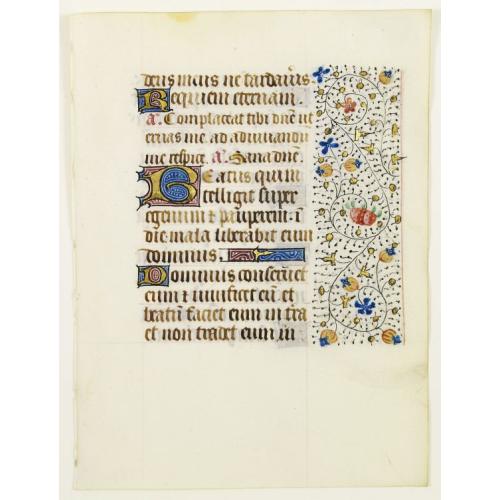 deus meus ne tardaueris
Requiem eternam.
a. Complaceat tibi dñe ut
eruas me ad adiuuandu
me respice. a. Sana dñe.
Beatus qui in
telligit super
egenum & pauperem: ī
die mala liberabit eum
dominus.
Dominus conseruet
eum & uiuificet eū et
beatum faciet eum in tra
et non tradet eum in